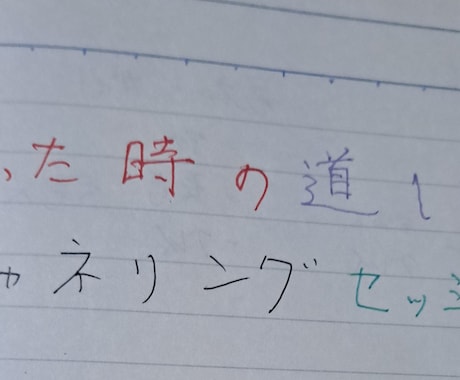 った時の道し
ャネリングセッシ